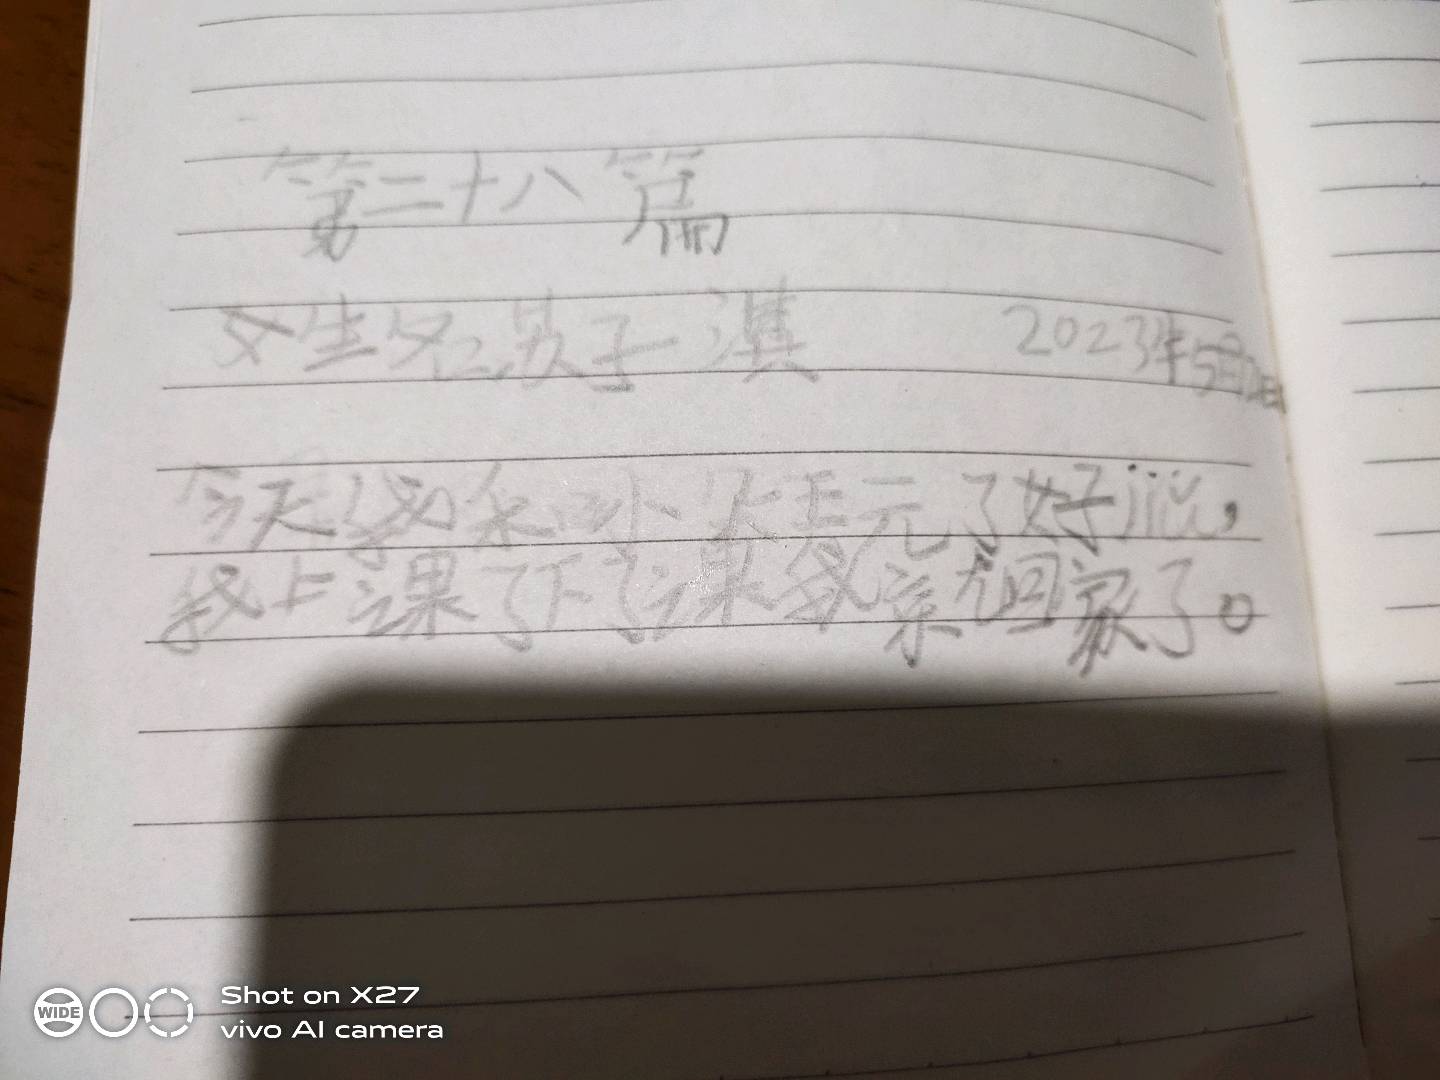 第二十八篇
女生名:苏子淇 2023年5月
今天我和小朵玩了好jiǔ,
我上课了下了课我就回家了。
WIDE
Shot on X27
vivo AI camera